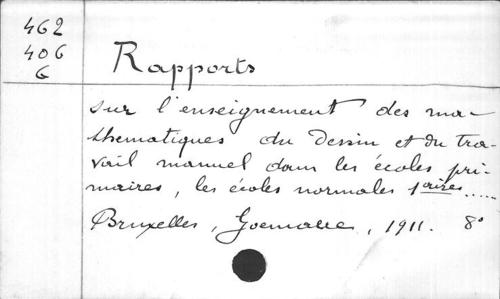 462
406
6
Rapports
sur l'enseignement des ma-
thematiques du Dessin et du tra-
vail manuel dans les écoles pri-
maires, les écoles normales 1aires.....
Bruxelles, Goemaere, 1911. 8°